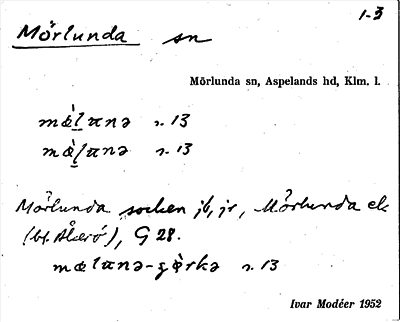 1-3
Mörlunda sn
Mörlunda sn, Aspelands hd, Klm. l.
mæ̀l̠ɷnə r. 13
mæ̀l̠ɷnə r. 13
Mörlunda socken jb, jr, Mörlunda
(bl. Åkerö), G 28.
mælɷnə-gə̀rkə r. 13
Ivar Modéer 1952